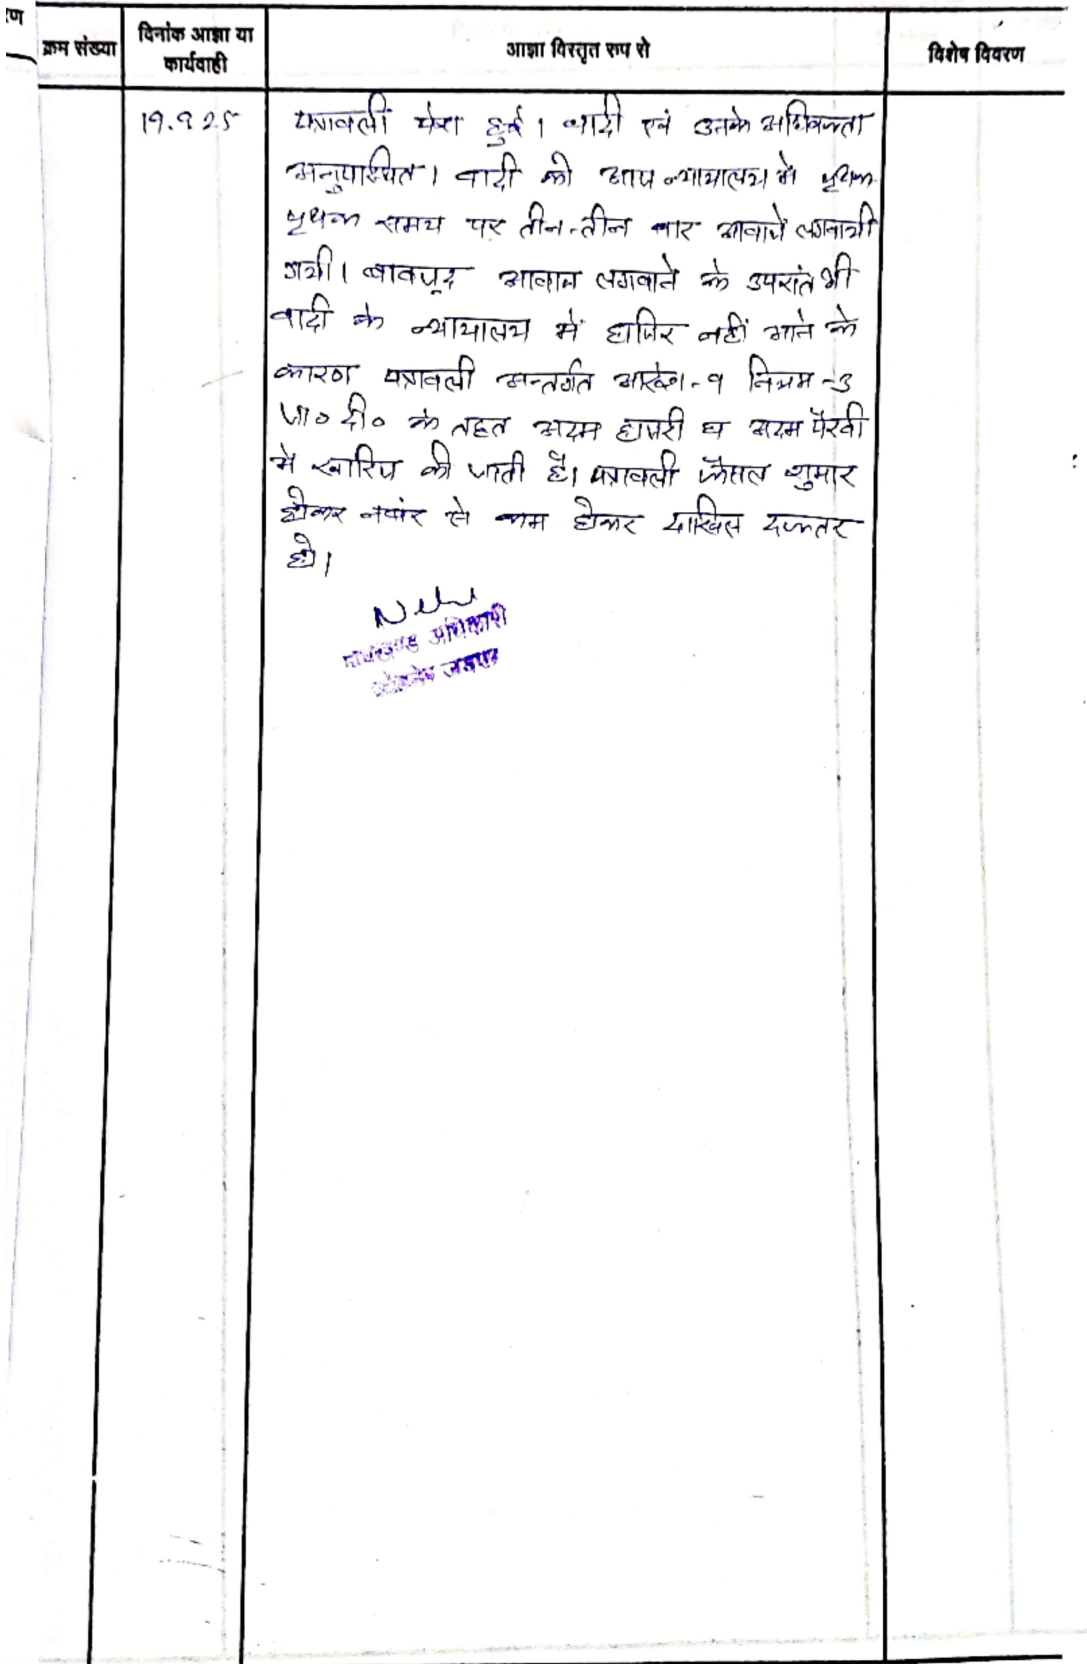 रण
क्रम संख्या
दिनांक आज्ञा या
कार्यवाही
आज्ञा विस्तृत रुप से
विशेष विवरण
19.9.25
पत्रावली पेश हुई। वादी एवं उनके अधिवक्ता
अनुपस्थित। वादी को आज न्यायालय में पृथक-
पृथक समय पर तीन-तीन बार आवाजें लगवायी
गयी। बावजूद आवाज लगवाने के उपरांत भी
वादी के न्यायालय में हाजिर नहीं आने के
कारण पत्रावली अन्तर्गत आदेश-9 नियम-3
जा० दी० के तहत अदम हाजरी व अदम पैरवी
में खारिज की जाती है। पत्रावली फैसल शुमार
होकर नम्बर से कम होकर दाखिल दफ्तर
हो।
अधिकारी